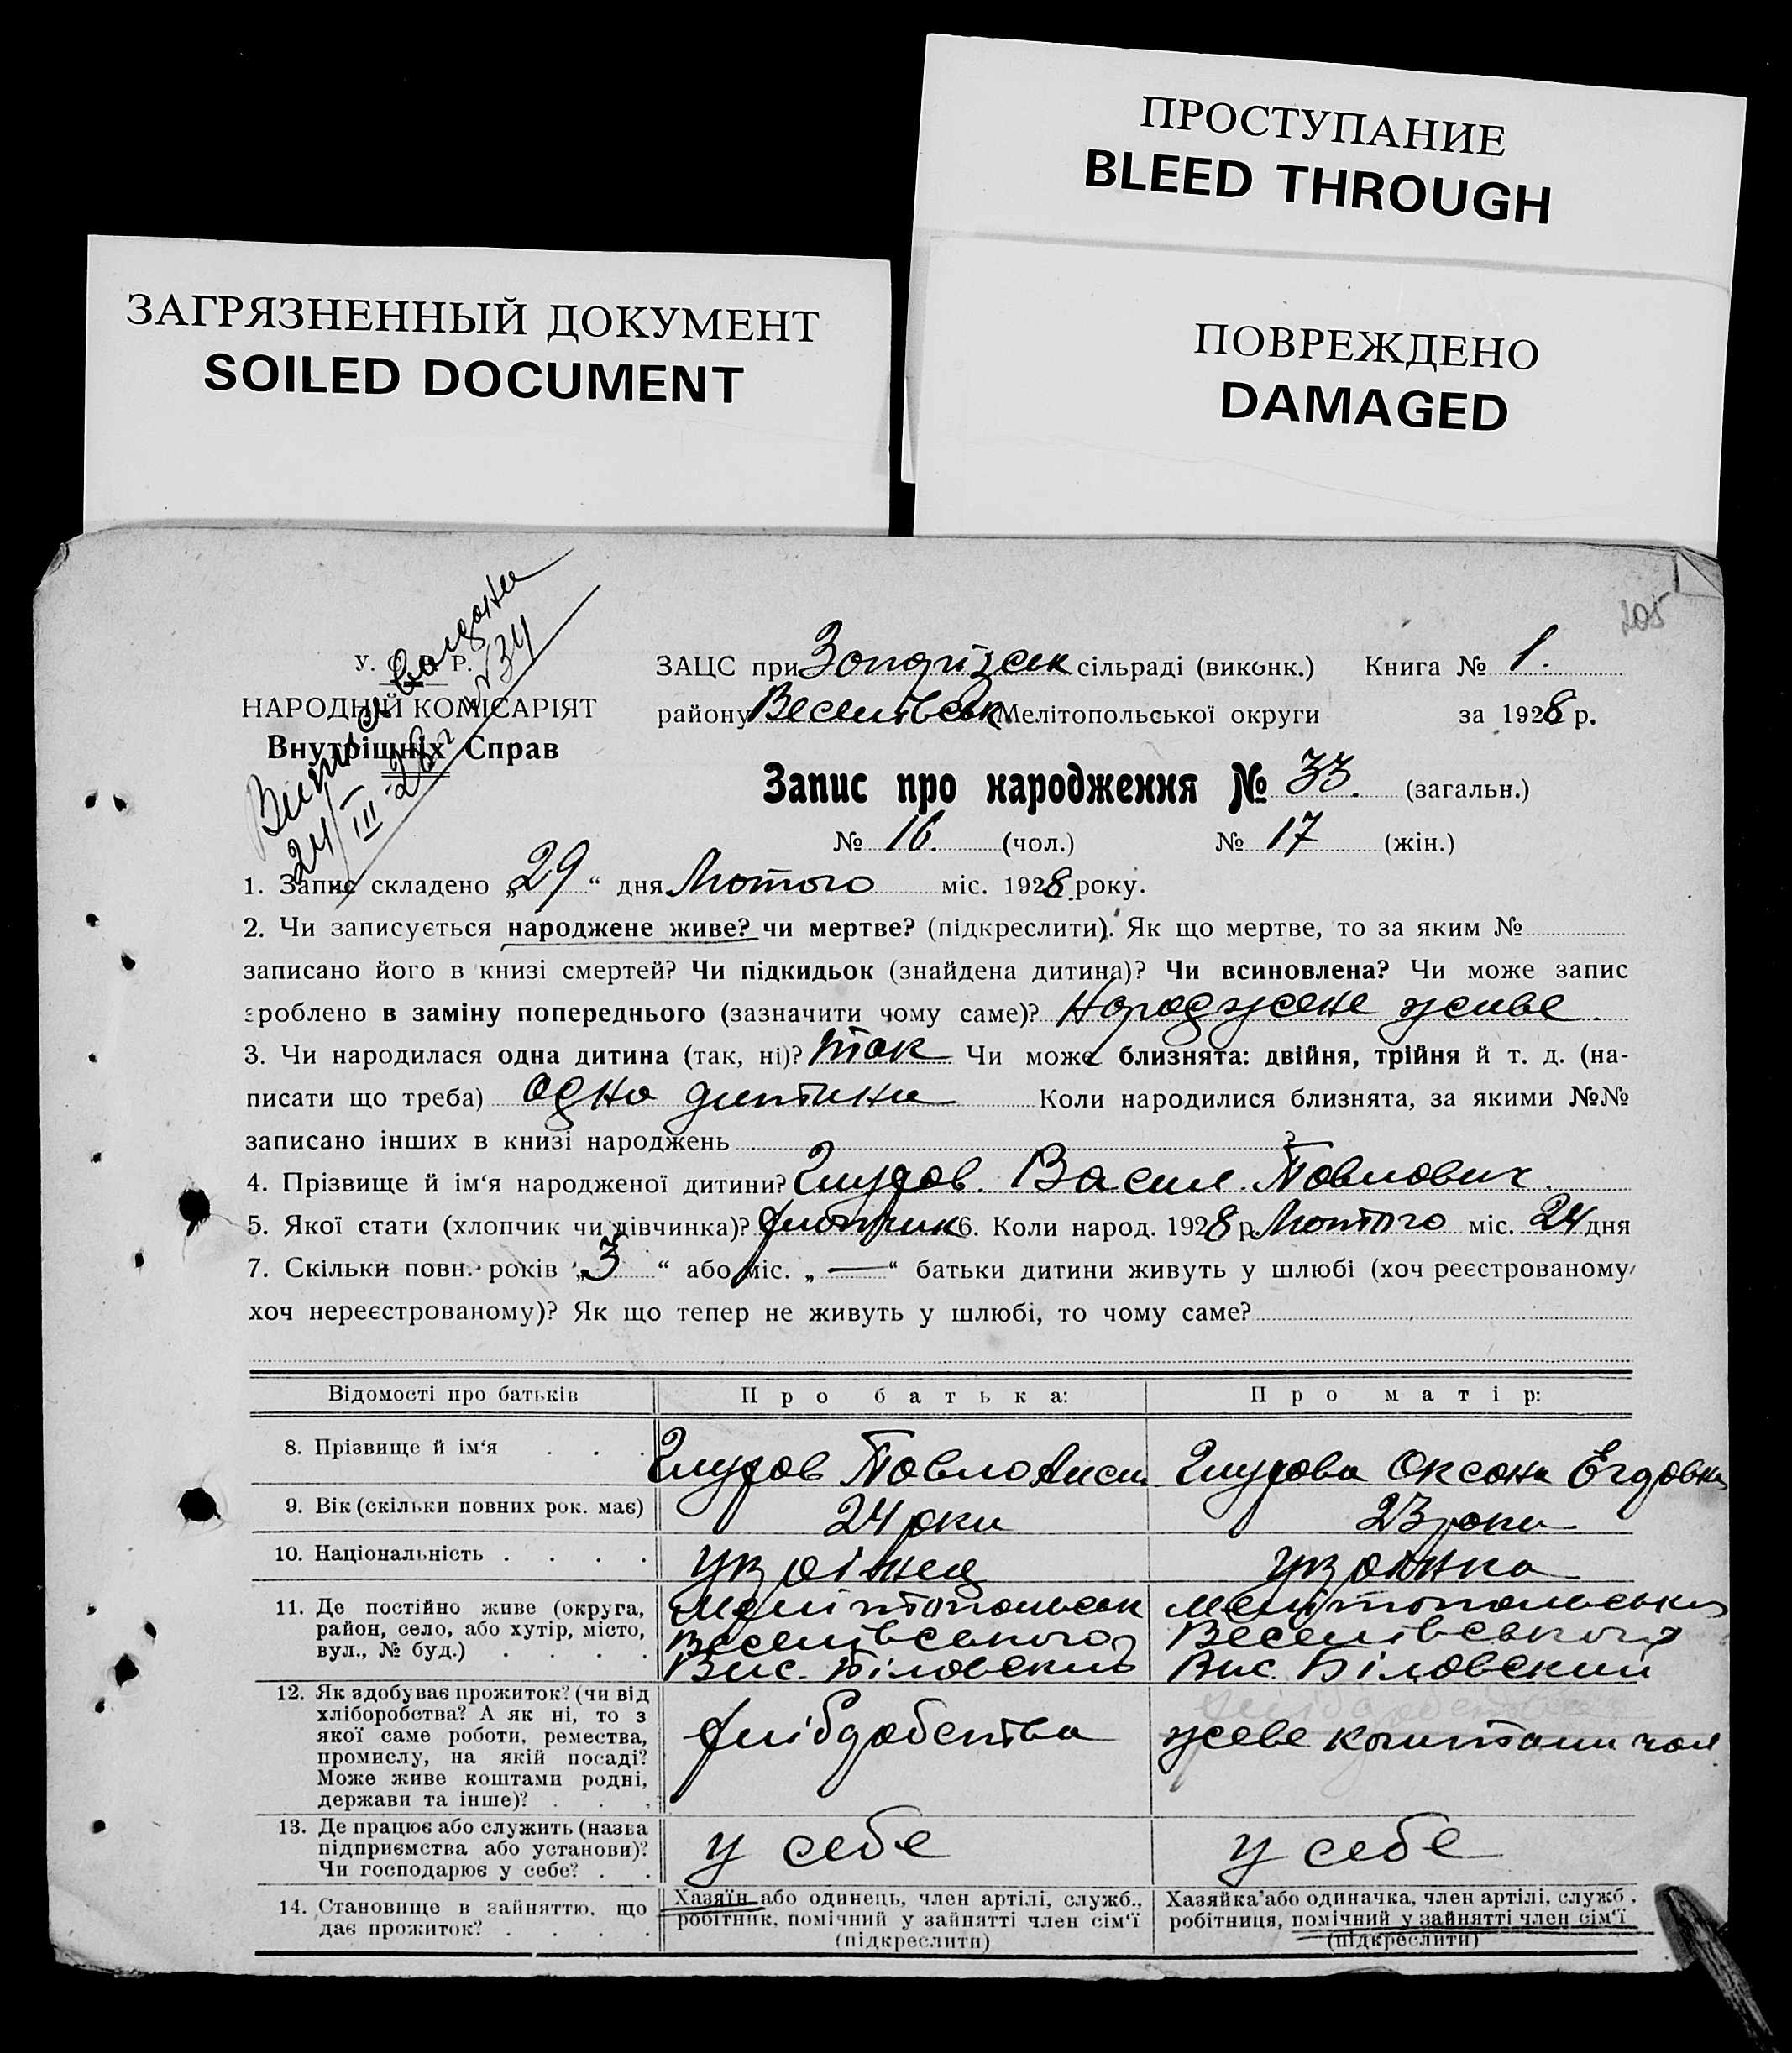 ПРОСТУПАНИЕ
BLEED THROUGH
ЗАГРЯЗНЕННЫЙ ДОКУМЕНТ
SOILED DOCUMENT
ПОВРЕЖДЕНО
DAMAGED
205
У. С. Р. Р.
НАРОДНІЙ КОМІСАРІЯТ
Внутрішніх Справ
24/III-28 г. № 34
ЗАЦС при сільраді (виконк.) Книга № 1.
району Веселівськ Мелітопольської округи за 1928 р.
Запис про народження № 33. (загальн.)
№ 16. (чол.) № 17 (жін.)
1. Запис складено „29“ дня Лютого міс. 1928 року.
2. Чи записується народжене живе? чи мертве? (підкреслити). Як що мертве, то за яким №
записано його в книзі смертей? Чи підкидьок (знайдена дитина)? Чи всиновлена? Чи може запис
зроблено в заміну попереднього (зазначити чому саме)? Народжене живе.
3. Чи народилася одна дитина (так, ні)? так Чи може близнята: двійня, трійня й т. д. (на-
писати що треба) одна дитина Коли народилися близнята, за якими №№
записано інших в книзі народжень
4. Прізвище й ім‘я народженої дитини? Василь Павлович.
5. Якої стати (хлопчик чи дівчинка)? хлопчик 6. Коли народ. 1928 р. Лютого міс. 24 дня
7. Скільки повн. років „3“ або міс. „—“ батьки дитини живуть у шлюбі (хоч реєстрованому
хоч нереєстрованому)? Як що тепер не живуть у шлюбі, то чому саме?
Відомості про батьків Про батька: Про матір:
8. Прізвище й ім‘я . . . Павло Оксана
9. Вік (скільки повних рок. має) 24 роки 23 роки
10. Національність . . . . українец українка
11. Де постійно живе (округа,
район, село, або хутір, місто,
вул., № буд.) . . . .
Мелітопольськ
Веселівського
Вис. Біловський
Веселівського
Вис. Біловский
12. Як здобуває прожиток? (чи від
хліборобства? А як ні, то з
якої саме роботи, ремества,
промислу, на якій посаді?
Може живе коштами родні,
держави та інше)? . . .
хліборобства
живе коштами чол
13. Де працює або служить (назва
підприємства або установи)?
Чи господарює у себе? . .
у себе
у себе
14. Становище в зайняттю, що
дає прожиток? . . . .
Хазяїн або одинець, член артілі, служб.,
робітник, помічний у зайнятті член сім‘ї
(підкреслити)
Хазяйка або одиначка, член артілі, служб.,
робітниця, помічний у зайнятті член сім‘ї
(підкреслити)